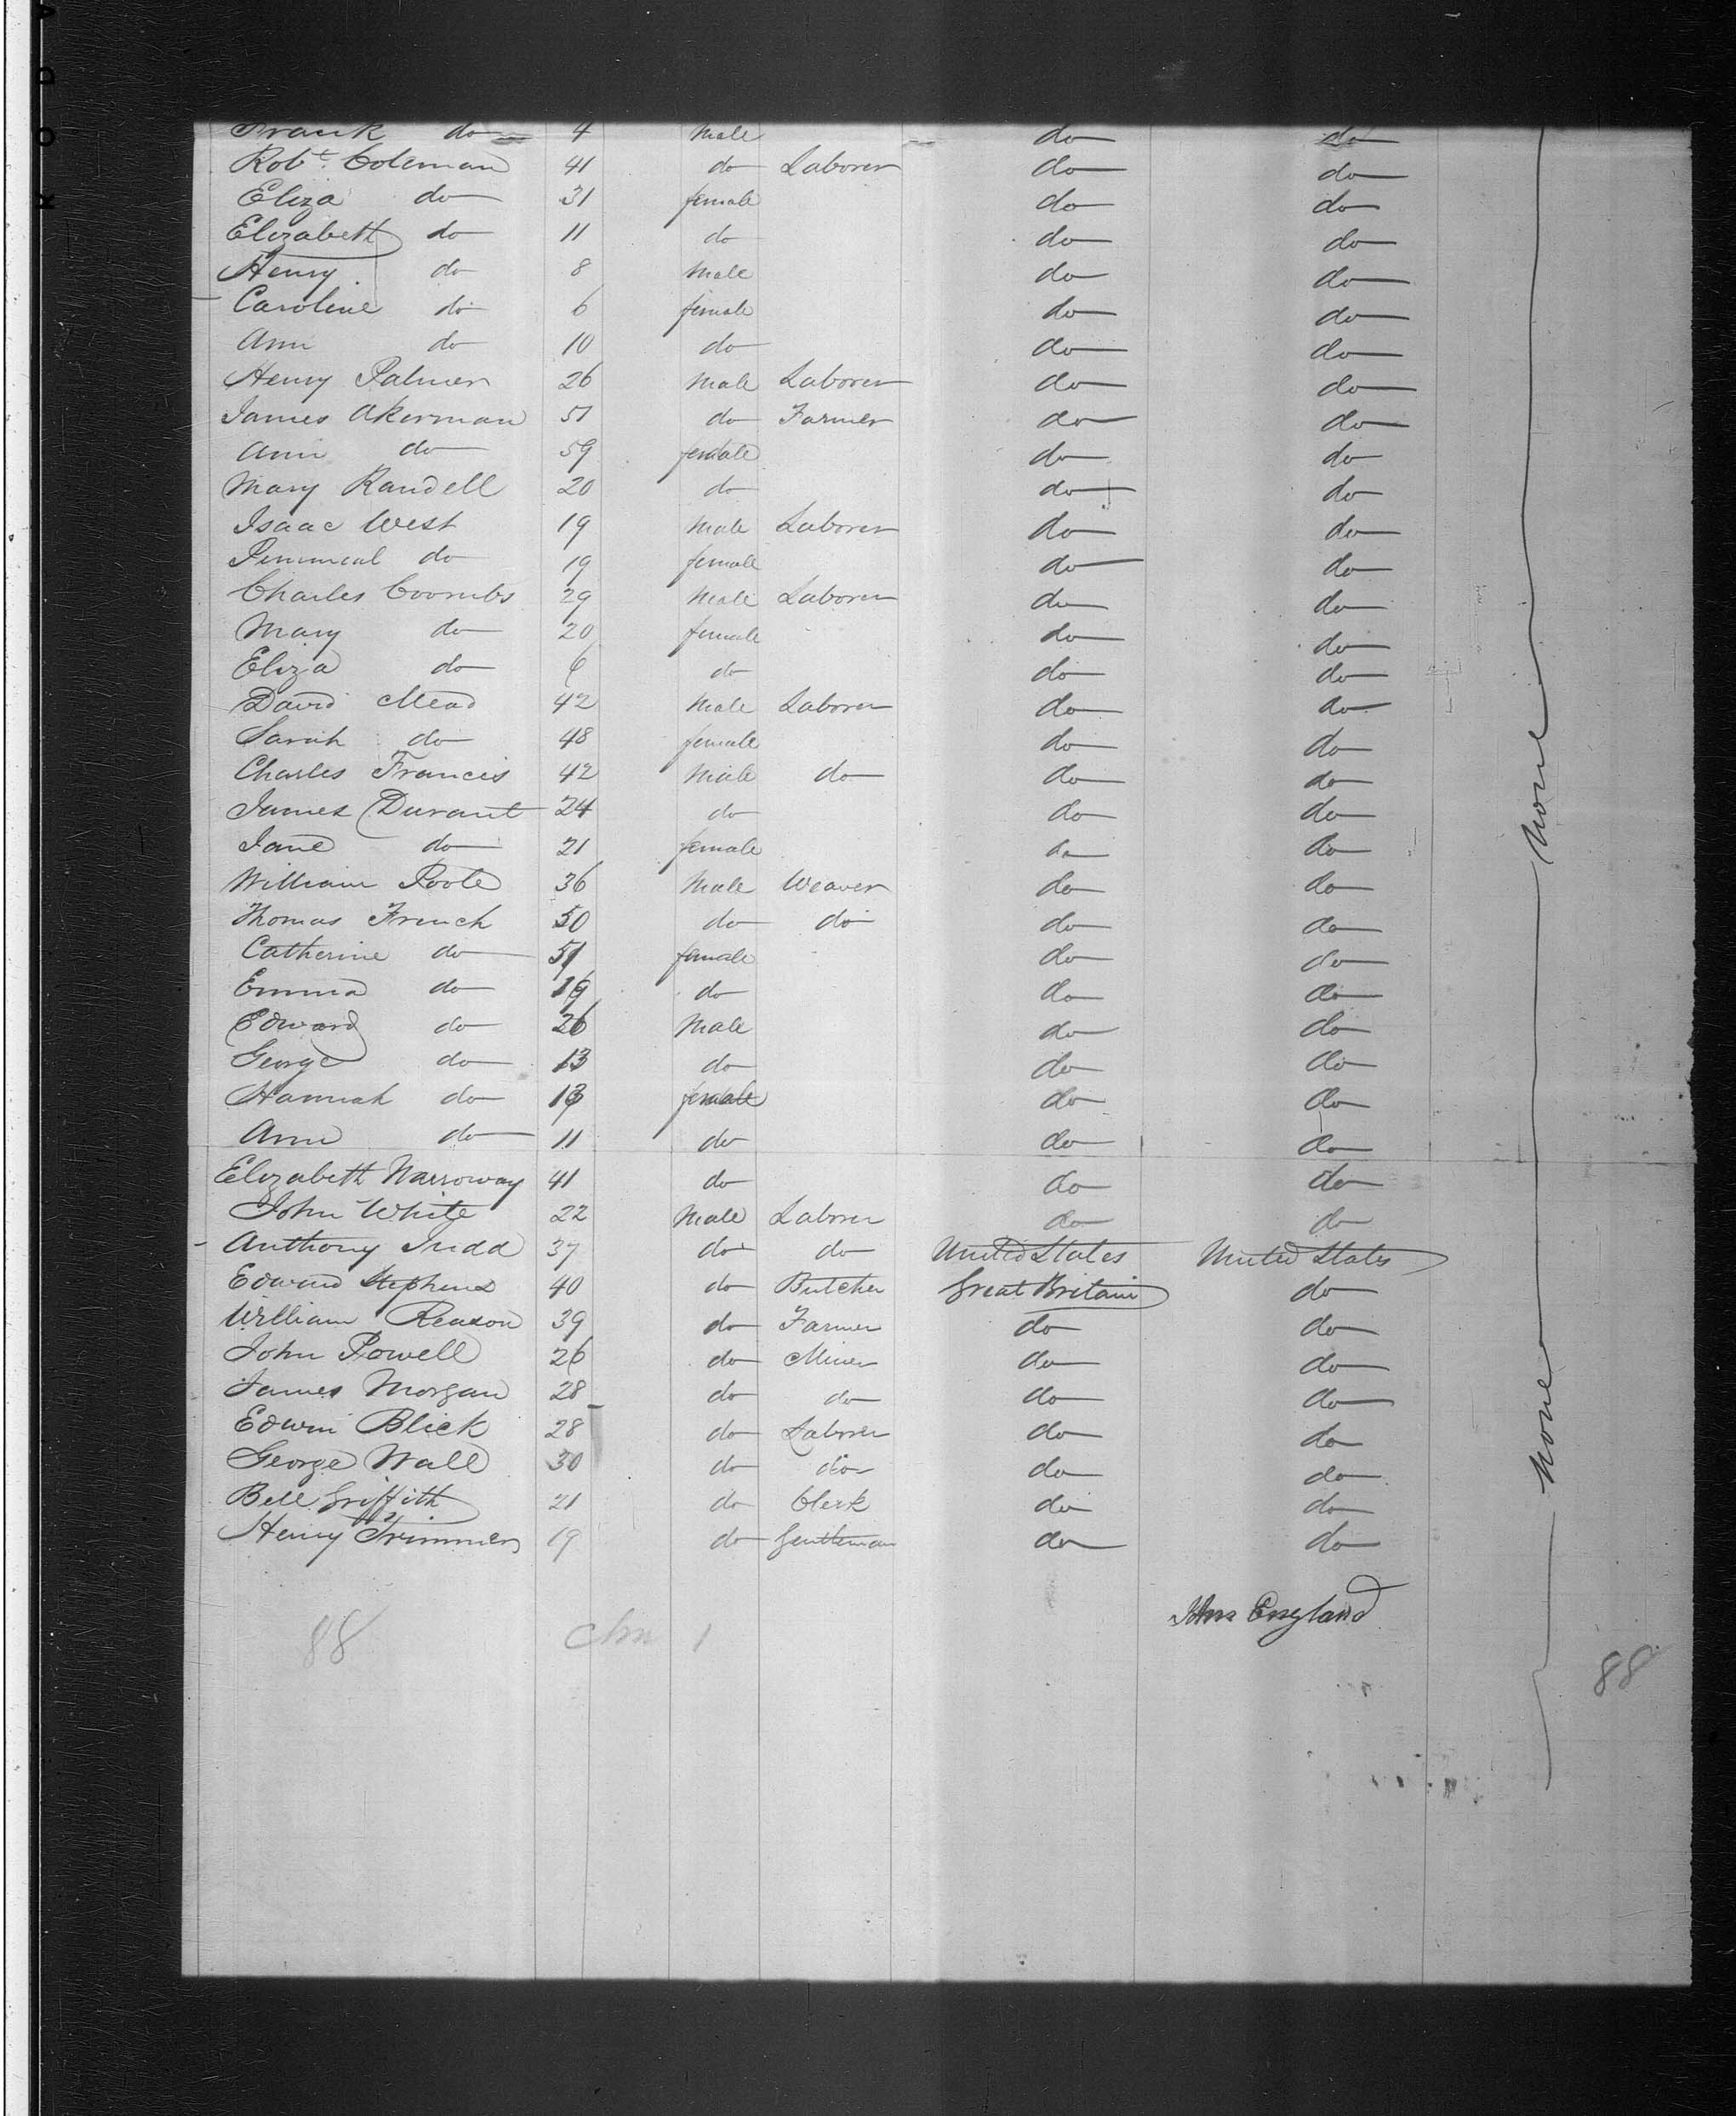 Frank do 4 Male do do
Robt. Coleman 41 do Laborer do do
Eliza do 31 female do do
Elizabeth do 11 do do do
Henry do 8 Male do do
Caroline do 6 female do do
Ann do 10 do do do
Henry Palmer 26 Male Laborer do do
James Akerman 51 do Farmer do do
Ann do 59 female do do
Mary Randell 20 do do do
Isaac West 19 Male Laborer do do
do 19 female do do
Charles Coombs 29 Male Laborer do do
Mary do 20 female do do
Eliza do 6 do do do
David Mead 42 Male Laborer do do
Sarah do 48 female do do
Charles Francis 42 Male do do do
James Durant 24 do do do
Jane do 21 female do do
William Poole 36 Male Weaver do do
Thomas French 50 do do do do
Catherine do 51 female do do
Emma do 19 do do do
Edward do 26 Male do do
George do 13 do do do
Hannah do female do do
Ann do 11 do do do
Elizabeth Narroway 41 do do do
John White 22 Male Laborer do do
Anthony Judd 37 do do United States United States
Edward Stephens 40 do Butcher Great Britain do
William Reason 39 do Farmer do do
John Powell 26 do Miner do do
James Morgan 28 do do do do
Edwin Blick 28 do Laborer do do
George Wall 30 do do do do
Bell Griffith 21 do Clerk do do
Henry Trimmer 19 do Gentleman do do
none none
John England
88 1
88